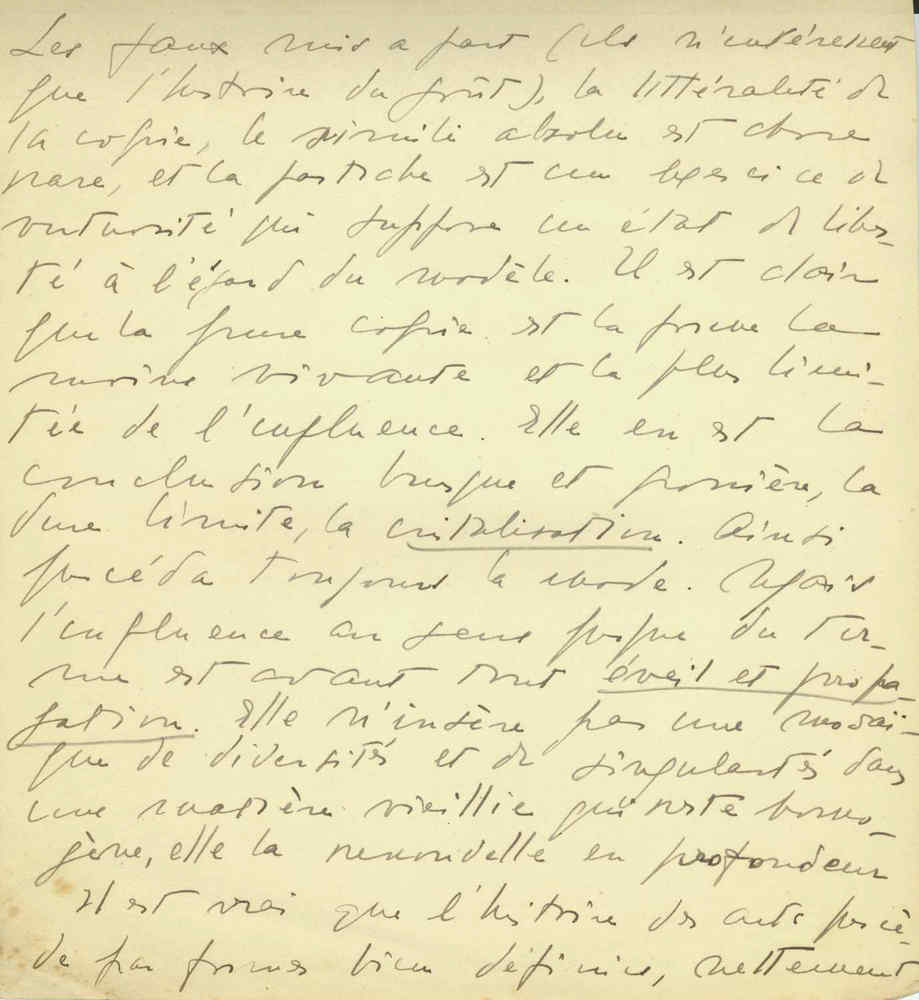 Les faux mis a part (ils n'intéressent
que l'histoire du goût), la littéralité de
la copie, le simili absolu est chose
rare, et la pastiche est un exercice de
virtuosité qui suppose un état de liber-
té à l'égard du modèle. Il est clair
que la pure copie est la forme la
moins vivante et la plus limi-
tée de l'influence. Elle en est la
conclusion brusque et grossière, la
dure limite, la cristalisation. Ainsi
procéda toujours la mode. Mais
l'influence au sens propre du ter-
me est avant tout éveil et propa-
gation. Elle n'insère pas une mosaï-
que de diversités et de singularités dans
une matière vieillie qui reste homo-
gène, elle la renouvelle en profondeur
Il est vrai que l'histoire des arts procè-
de par formes bien définies, nettement